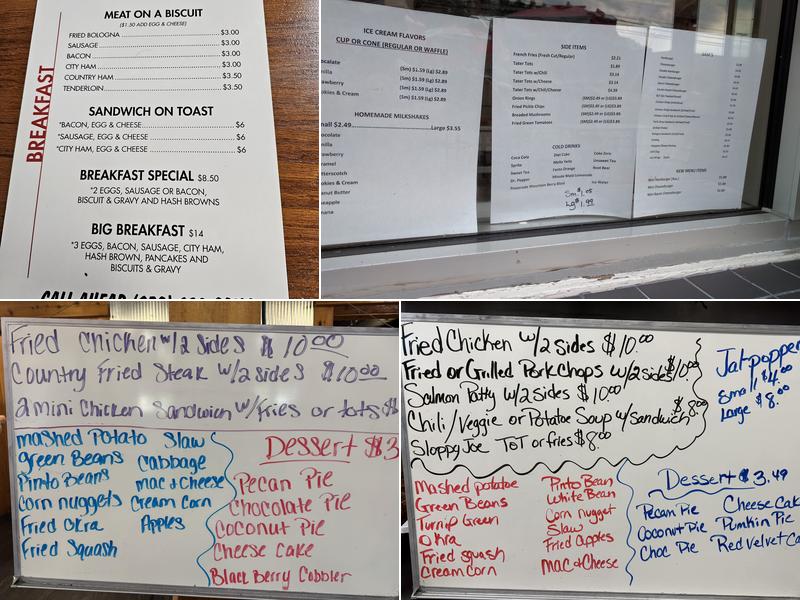 MEAT ON A BISCUIT
($1.50 ADD EGG & CHEESE)
FRIED BOLOGNA $3.00
SAUSAGE $3.00
BACON $3.00
CITY HAM $3.00
COUNTRY HAM $3.50
TENDERLOIN $3.50
BREAKFAST
SANDWICH ON TOAST
*BACON, EGG & CHEESE $6
*SAUSAGE, EGG & CHEESE $6
*CITY HAM, EGG & CHEESE $6
BREAKFAST SPECIAL $8.50
*2 EGGS, SAUSAGE OR BACON,
BISCUIT & GRAVY AND HASH BROWNS
BIG BREAKFAST $14
*3 EGGS, BACON, SAUSAGE, CITY HAM,
HASH BROWN, PANCAKES AND
BISCUITS & GRAVY
CALL AHEAD
ICE CREAM FLAVORS
CUP OR CONE (REGULAR OR WAFFLE)
ocolate (Sm) $1.59 (Lg) $2.89
nilla (Sm) $1.59 (Lg) $2.89
rawberry (Sm) $1.59 (Lg) $2.89
okies & Cream (Sm) $1.59 (Lg) $2.89
HOMEMADE MILKSHAKES
mall $2.49 Large $3.55
ocolate
nilla
rawberry
ramel
tterscotch
okies & Cream
anut Butter
neapple
nana
SIDE ITEMS
French Fries (Fresh Cut/Regular) $2.21
Tater Tots $1.89
Tater Tots w/Chili $3.14
Tater Tots w/Cheese $3.14
Tater Tots w/Chili/Cheese $4.39
Onion Rings (SM)$2.49 or (LG)$3.89
Fried Pickle Chips (SM)$2.49 or (LG)$3.89
Breaded Mushrooms (SM)$2.49 or (LG)$3.89
Fried Green Tomatoes (SM)$2.49 or (LG)$3.89
COLD DRINKS
Coca Cola Diet Coke Coke Zero
Sprite Mello Yello Unsweet Tea
Sweet Tea Fanta Orange Root Beer
Dr. Pepper Minute Maid Lemonade
Powerade Mountain Berry Blast Ice Water
Sm $1.05
Lg $1.99
NEW MENU ITEMS
Fried Chicken w/2 sides $10.00
Country Fried Steak w/2 sides $10.00
2 mini Chicken Sandwich w/Fries or tots $
mashed Potato Slaw
green Beans Cabbage
Pinto Beans mac & Cheese
corn nuggets Cream Corn
Fried Okra Apples
Fried Squash
Dessert $3
Pecan Pie
Chocolate Pie
Coconut Pie
Cheese Cake
Black Berry Cobbler
Fried Chicken w/2 sides $10.00
Fried or Grilled Pork Chops w/2 sides $10.00
Salmon Patty w/2 sides $10.00
Chili/Veggie or Potatoe Soup w/sandwich $8.00
Sloppy Joe ToT or fries $8.00
Jalapopper
Small $4.00
Large $8.00
Mashed potatoe Pinto Bean
Green Beans White Bean
Turnip Green Corn nugget
Okra Slaw
Fried squash Fried apples
Cream Corn Mac & Cheese
Dessert $3.49
Pecan Pie Cheese Cak
Coconut Pie Pumkin Pie
Choc Pie Red velvet Ca